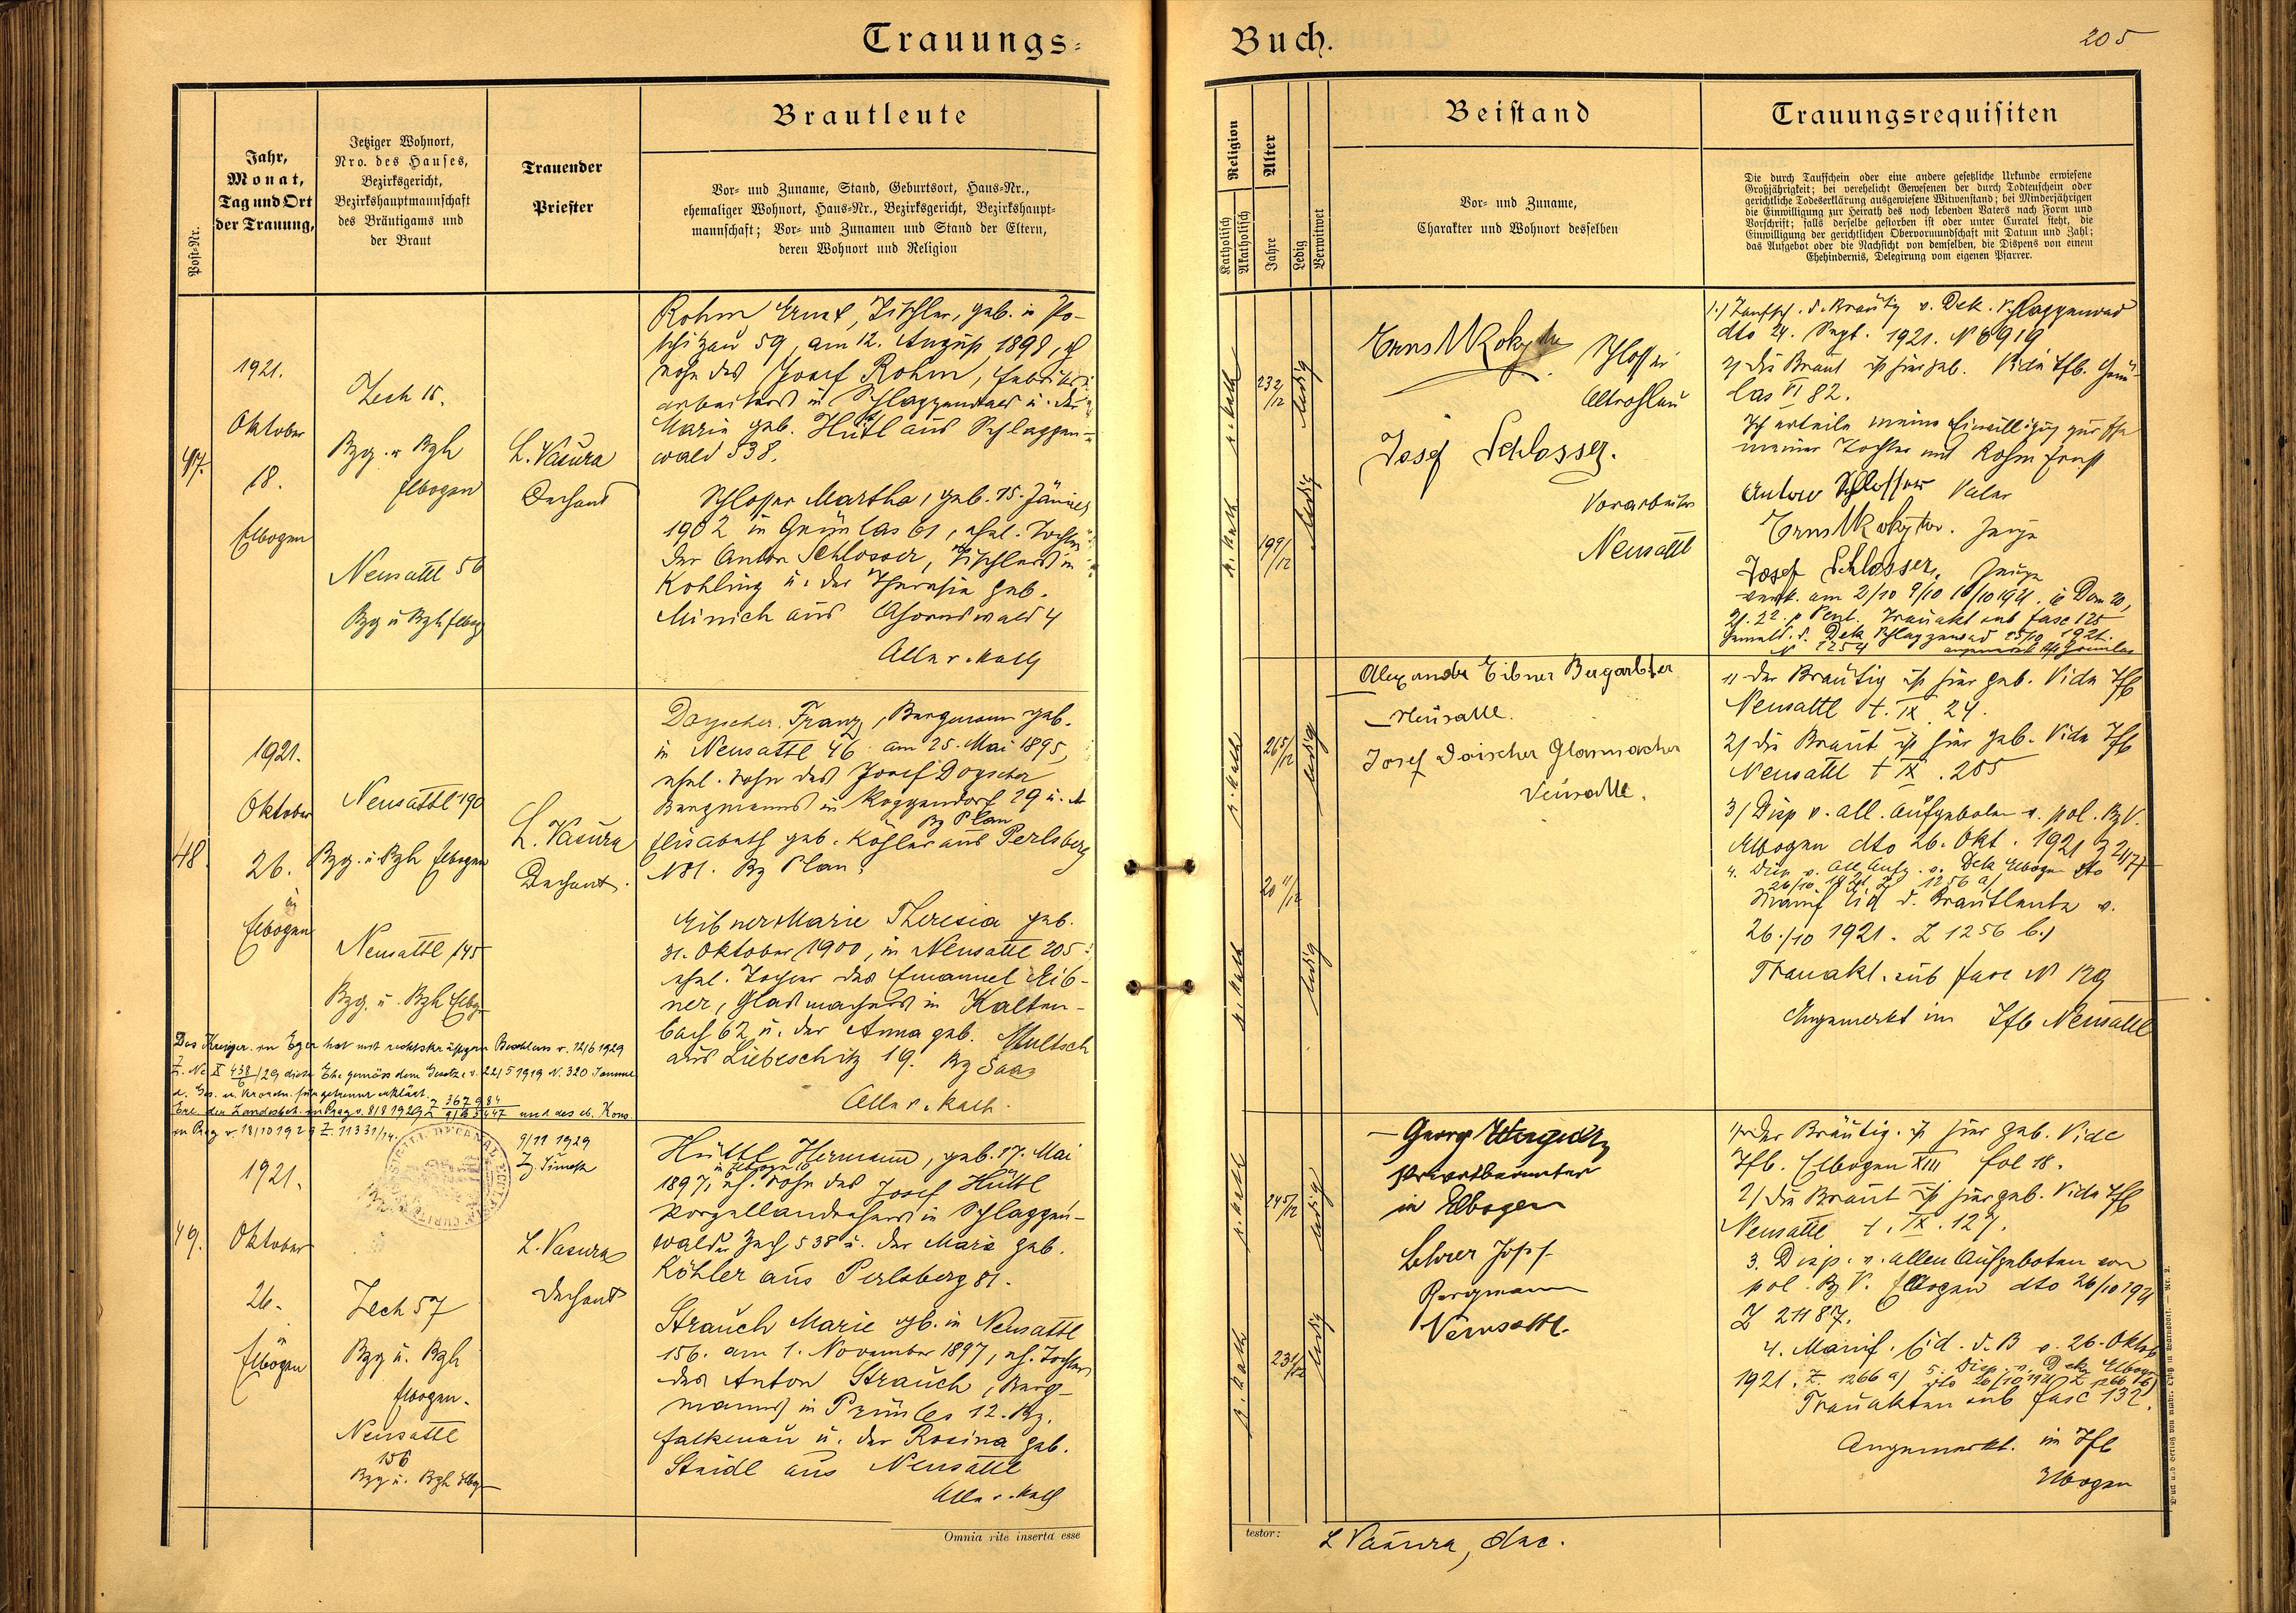 Trauungs-
Post-Nr.
Jahr,
Monat,
Tag und Ort
der Trauung,
Jetziger Wohnort,
Nro. des Hauses,
Bezirksgericht,
Bezirkshauptmannschaft
des Bräutigams und
der Braut
Trauender
Priester
Brautleute
Vor- und Zuname, Stand, Geburtsort, Haus-Nr.,
ehemaliger Wohnort, Haus-Nr., Bezirksgericht, Bezirkshaupt-
mannschaft; Vor- und Zunamen und Stand der Eltern,
deren Wohnort und Religion
47.
1921.
Oktober
18.
Elbogen
Zech 15.
Bzg. u Bzh
Elbogen
Neusattl 56
Bzg u Bzh Elbog
L. Vasura
Dechant
Rohm Ernst, Tischler, geb. in Po-
schitzau 59, am 12. August 1898, eh
Sohn des Josef Rohm, Fabriks-
arbeiters in Schlaggenwald u. der
Marie geb. Hüttl aus Schlaggen-
wald 538.
Schlosser Martha, geb. 15. Jänner
1902 in Grünlas 61, ehel. Tochter
des Anton Schlosser, Tischlers in
Kohling u. der Theresia geb.
Minich aus Ahornswald 4
Alle r. kath
48.
1921.
Oktober
26.
in
Elbogen
Neusattl 190
Bzg. u. Bzh Elbogen
Neusattl 145
Bzg. u. Bzh Elbg
L. Vasura
Dechant.
Doyscher Franz, Bergmann geb.
in Neusattl 46 am 25. Mai 1895,
ehel. Sohn des Josef Doyscher
Bergmanns in Roggendorf 29 u. d
Bz Plan
Elisabeth geb. Köhler aus Perlsberg
N 81. Bz Plan.
Eibner Marie Theresia geb.
31. Oktober 1900, in Neusattl 205
ehel. Tochter des Emanuel Eib-
ner, Glasmachers in Kalten-
bach 62 u. der Anna geb. Multsch
aus Liebeschitz 19. Bz Saaz
Alle r. kath.
Das Kreisger. in Eger hat mit rechtskräftigem Beschluss v. 12/6 1929
Z. Nc X 438/6/29 diese Ehe gemäss dem Gesetze v. 22/5 1919 N. 320 Samml
d. Ges. u. Verordn. für getrennt erklärt.
Erl. der Landesbeh. in Prag v. 8/8 1929 Z 367984 und des eb. Kons
in Prag v. 18/10 1929 Z. 11331/14.
9/11 1929
49.
1921.
Oktober
26.
in
Elbogen
Zech 57
Bzg u. Bzh
Elbogen.
Neusattl
156
Bzg u. Bzh Elbg
L. Vasura
Dechant
Hüttl Hermann, geb. 17. Mai
1897, eh. Sohn des Josef Hüttl
Porzellandrehers in Schlaggen-
wald Zech 538 u. der Marie geb.
Köhler aus Perlsberg 81.
Strauch Marie gb. in Neusattl
156. am 1. November 1897, eh. Tochter
des Anton Strauch, Berg-
manns in Prünles 12. Bz.
Falkenau u. der Rosina geb.
Steidl aus Neusattl
Alle r. kath
Omnia rite inserta esse
Buch.
205
Religion
Katholisch
Akatholisch
Alter
Jahre
Ledig
Verwitwet
Beistand
Vor- und Zuname,
Charakter und Wohnort desselben
Trauungsrequisiten
Die durch Taufschein oder eine andere gesetzliche Urkunde erwiesene
Großjährigkeit; bei verehelicht Gewesenen der durch Todtenschein oder
gerichtliche Todeserklärung ausgewiesene Witwenstand; bei Minderjährigen
die Einwilligung zur Heirath des noch lebenden Vaters nach Form und
Vorschrift; falls derselbe gestorben ist oder unter Curatel steht, die
Einwilligung der gerichtlichen Obervormundschaft mit Datum und Zahl;
das Aufgebot oder die Nachsicht von demselben, die Dispens von einem
Ehehindernis, Delegirung vom eigenen Pfarrer.
r. kath
23 2/12
ledig
r. kath
19 9/12
ledig
Schlosser
Altrohlau
Josef Schlosser.
Vorarbeiter
Neusattl
1.) Taufsch. d. Bräutig v. Dek. Schlaggenwad
dto 24. Sept. 1921. N 6919
2) die Braut ist hier geb. Vide Tfb. Grün-
las VI 82.
Ich erteile meine Einwilligung zur Ehe
meiner Tochter mit Rohm Ernst
Anton Schlosser Vater
Zeuge
Josef Schlosser, Zeuge
verk. am 2/10 9/10 16/10 1921. i. e Dom 20,
21. 22. p Pent. Trauakt sub fasc 125
N 1254 angemerkt Tfb Grünlas
r. kath
26 5/12
ledig
r. kath
20 11/12
ledig
Alexander Eibner Bergarbter
Neusattl.
Josef Doischer Glasmacher
Neusattl.
1) der Bräutig ist hier geb. Vide Tfb
Neusattl t. IX. 24.
2) die Braut ist hier geb. Vide Tfb
Neusattl t IX. 205
3) Disp v. all. Aufgeboten v. pol. BzV.
Elbogen dto 26. Okt. 1921
4. Disp v. all Aufg. v. Dek Elbogen dto
26/10 1921 Z 1256 a)
Manif Eid d. Brautleute v.
26./10 1921. Z 1256 b.)
Trauakt. sub fasc N 129
Angemerkt im Tfb Neusattl
r. kath
24 5/12
ledig
r. kath
ledig
Georg
Privatbeamter
in Elbogen
Lehrer Josef
Bergmann
Neusattl.
1) der Bräutig. ist hier geb. Vide
Tfb. Elbogen XIII fol 18.
2) die Braut ist hier geb. Vide Tfb
Neusattl t. IX. 127.
3. Disp. v. allen Aufgeboten von
pol. Bz V. Elbogen dto 26/10 1921
Z 21187.
4. Manif. Eid. d. B v. 26. Oktob
1921. Z. 1266 a) 5. Disp. v. Dek. Elbogen
dto 26/10 1921 Z 1266 b)
Trauakten sub fasc 132.
Angemerkt. im Tfb
Elbogen
testor:
L Vasura, dec.